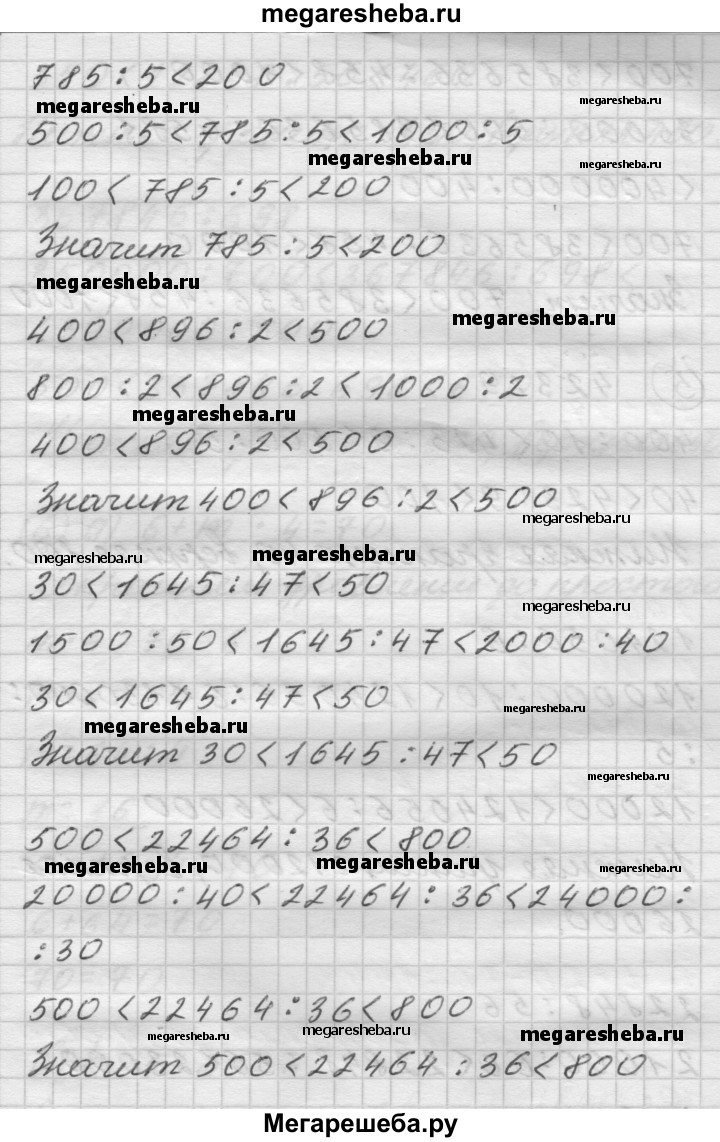 megaresheba.ru
785 : 5 < 200
megaresheba.ru
megaresheba.ru
500 : 5 < 785 : 5 < 1000 : 5
megaresheba.ru
megaresheba.ru
100 < 785 : 5 < 200
Значит 785 : 5 < 200
megaresheba.ru
megaresheba.ru
400 < 896 : 2 < 500
800 : 2 < 896 : 2 < 1000 : 2
megaresheba.ru
400 < 896 : 2 < 500
Значит 400 < 896 : 2 < 500
megaresheba.ru
megaresheba.ru
megaresheba.ru
30 < 1645 : 47 < 50
megaresheba.ru
1500 : 50 < 1645 : 47 < 2000 : 40
30 < 1645 : 47 < 50
megaresheba.ru
megaresheba.ru
Значит 30 < 1645 : 47 < 50
megaresheba.ru
500 < 22464 : 36 < 800
megaresheba.ru
megaresheba.ru
megaresheba.ru
20000 : 40 < 22464 : 36 < 24000 :
: 30
500 < 22464 : 36 < 800
megaresheba.ru
megaresheba.ru
megaresheba.ru
Значит 500 < 22464 : 36 < 800
Мегарешеба.ру